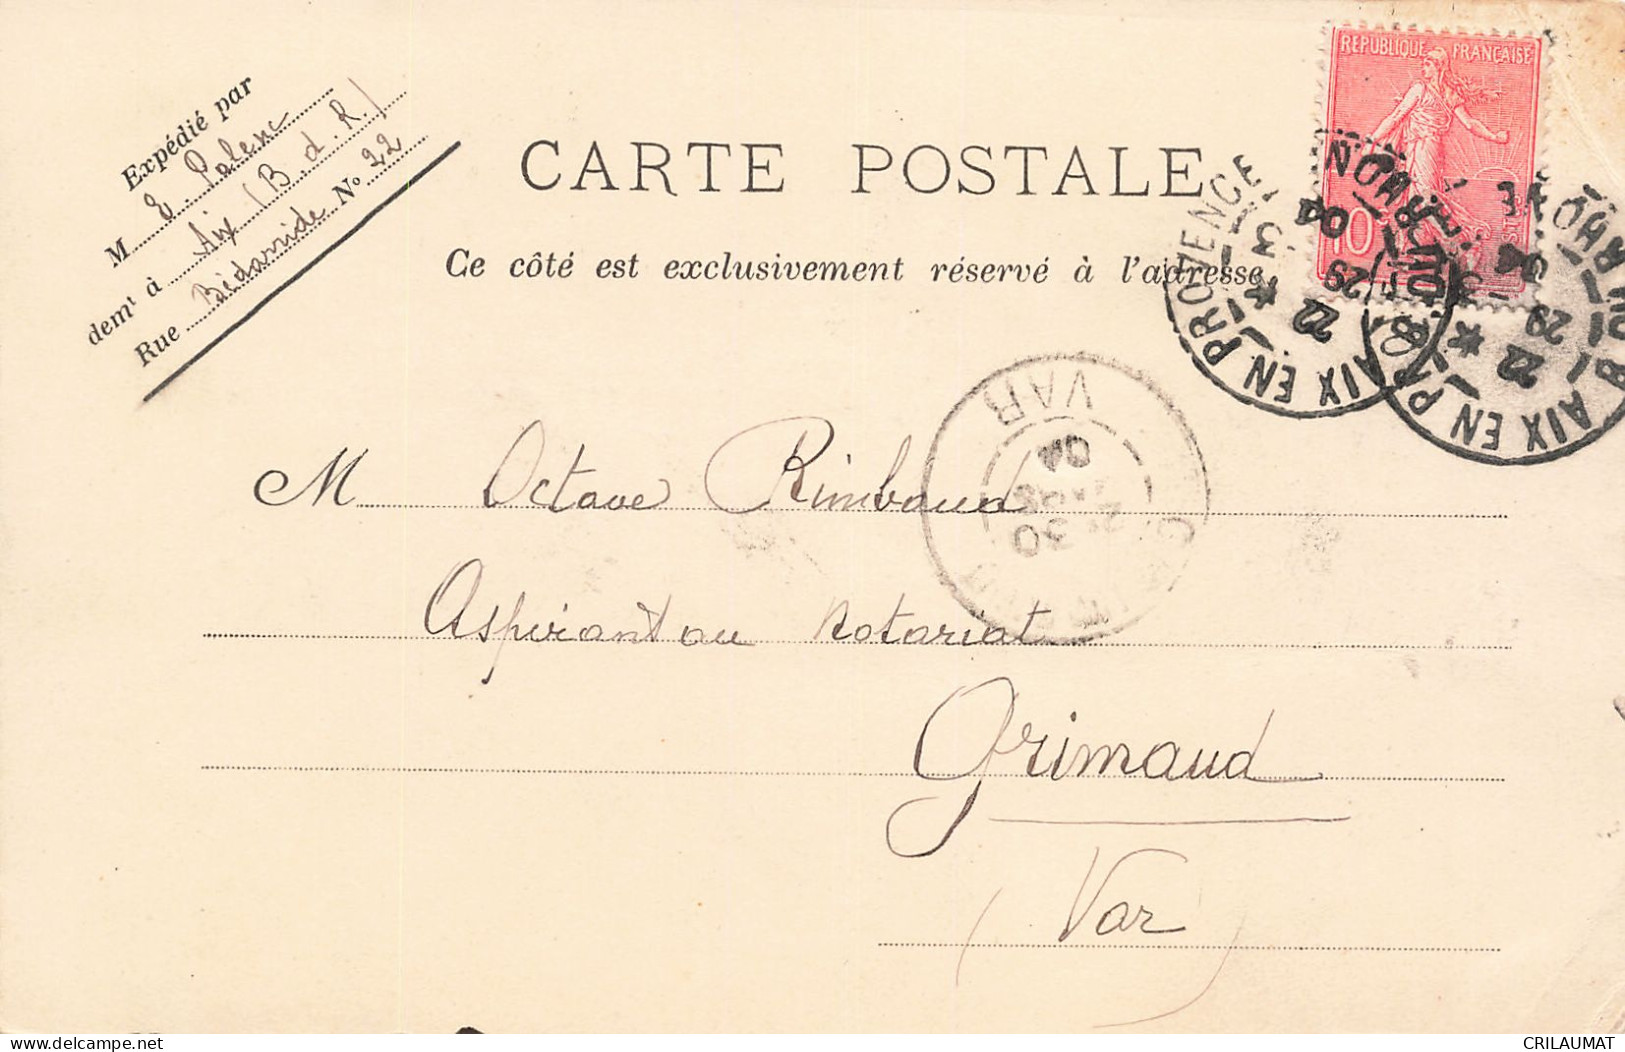 Expédié par
M E. Palenc
demt à Aix (B. d. R.)
Rue Bédarride No 22
CARTE POSTALE
Ce côté est exclusivement réservé à l'adresse
REPUBLIQUE FRANÇAISE
10
AIX EN PROVENCE
22 *
29
3
04
AIX EN PR
BOU RHONE
22 *
29
3
04
VAR
30
04
M Octave Rimbaud
Aspirant au notariat
Grimaud
(Var)
delcampe.net
CRILAUMAT